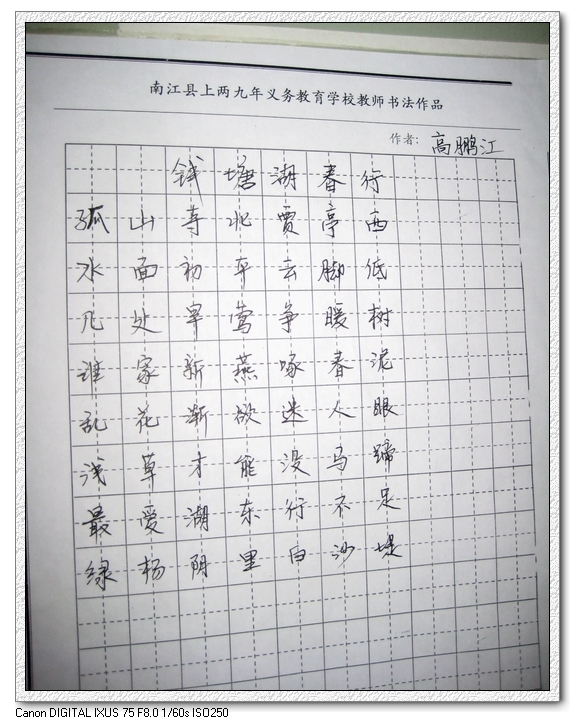 南江县上两九年义务教育学校教师书法作品
作者: 高鹏江
钱塘湖春行
孤山寺北贾亭西
水面初平云脚低
几处早莺争暖树
谁家新燕啄春泥
乱花渐欲迷人眼
浅草才能没马蹄
最爱湖东行不足
绿杨阴里白沙堤
Canon DIGITAL IXUS 75 F8.0 1/60s ISO250